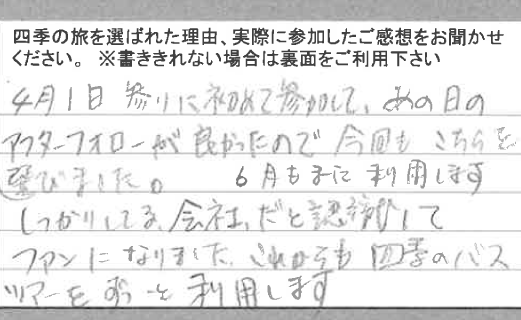 四季の旅を選ばれた理由、実際に参加したご感想をお聞かせ
ください。 ※書ききれない場合は裏面をご利用下さい
4月1日 参りに初めて参加して、あの日の
アフターフォローが良かったので今回もこちらを
選びました。 6月もまた利用します
しっかりしてる会社だと認識して
ファンになりました。これからも四季のバス
ツアーをずっと利用します